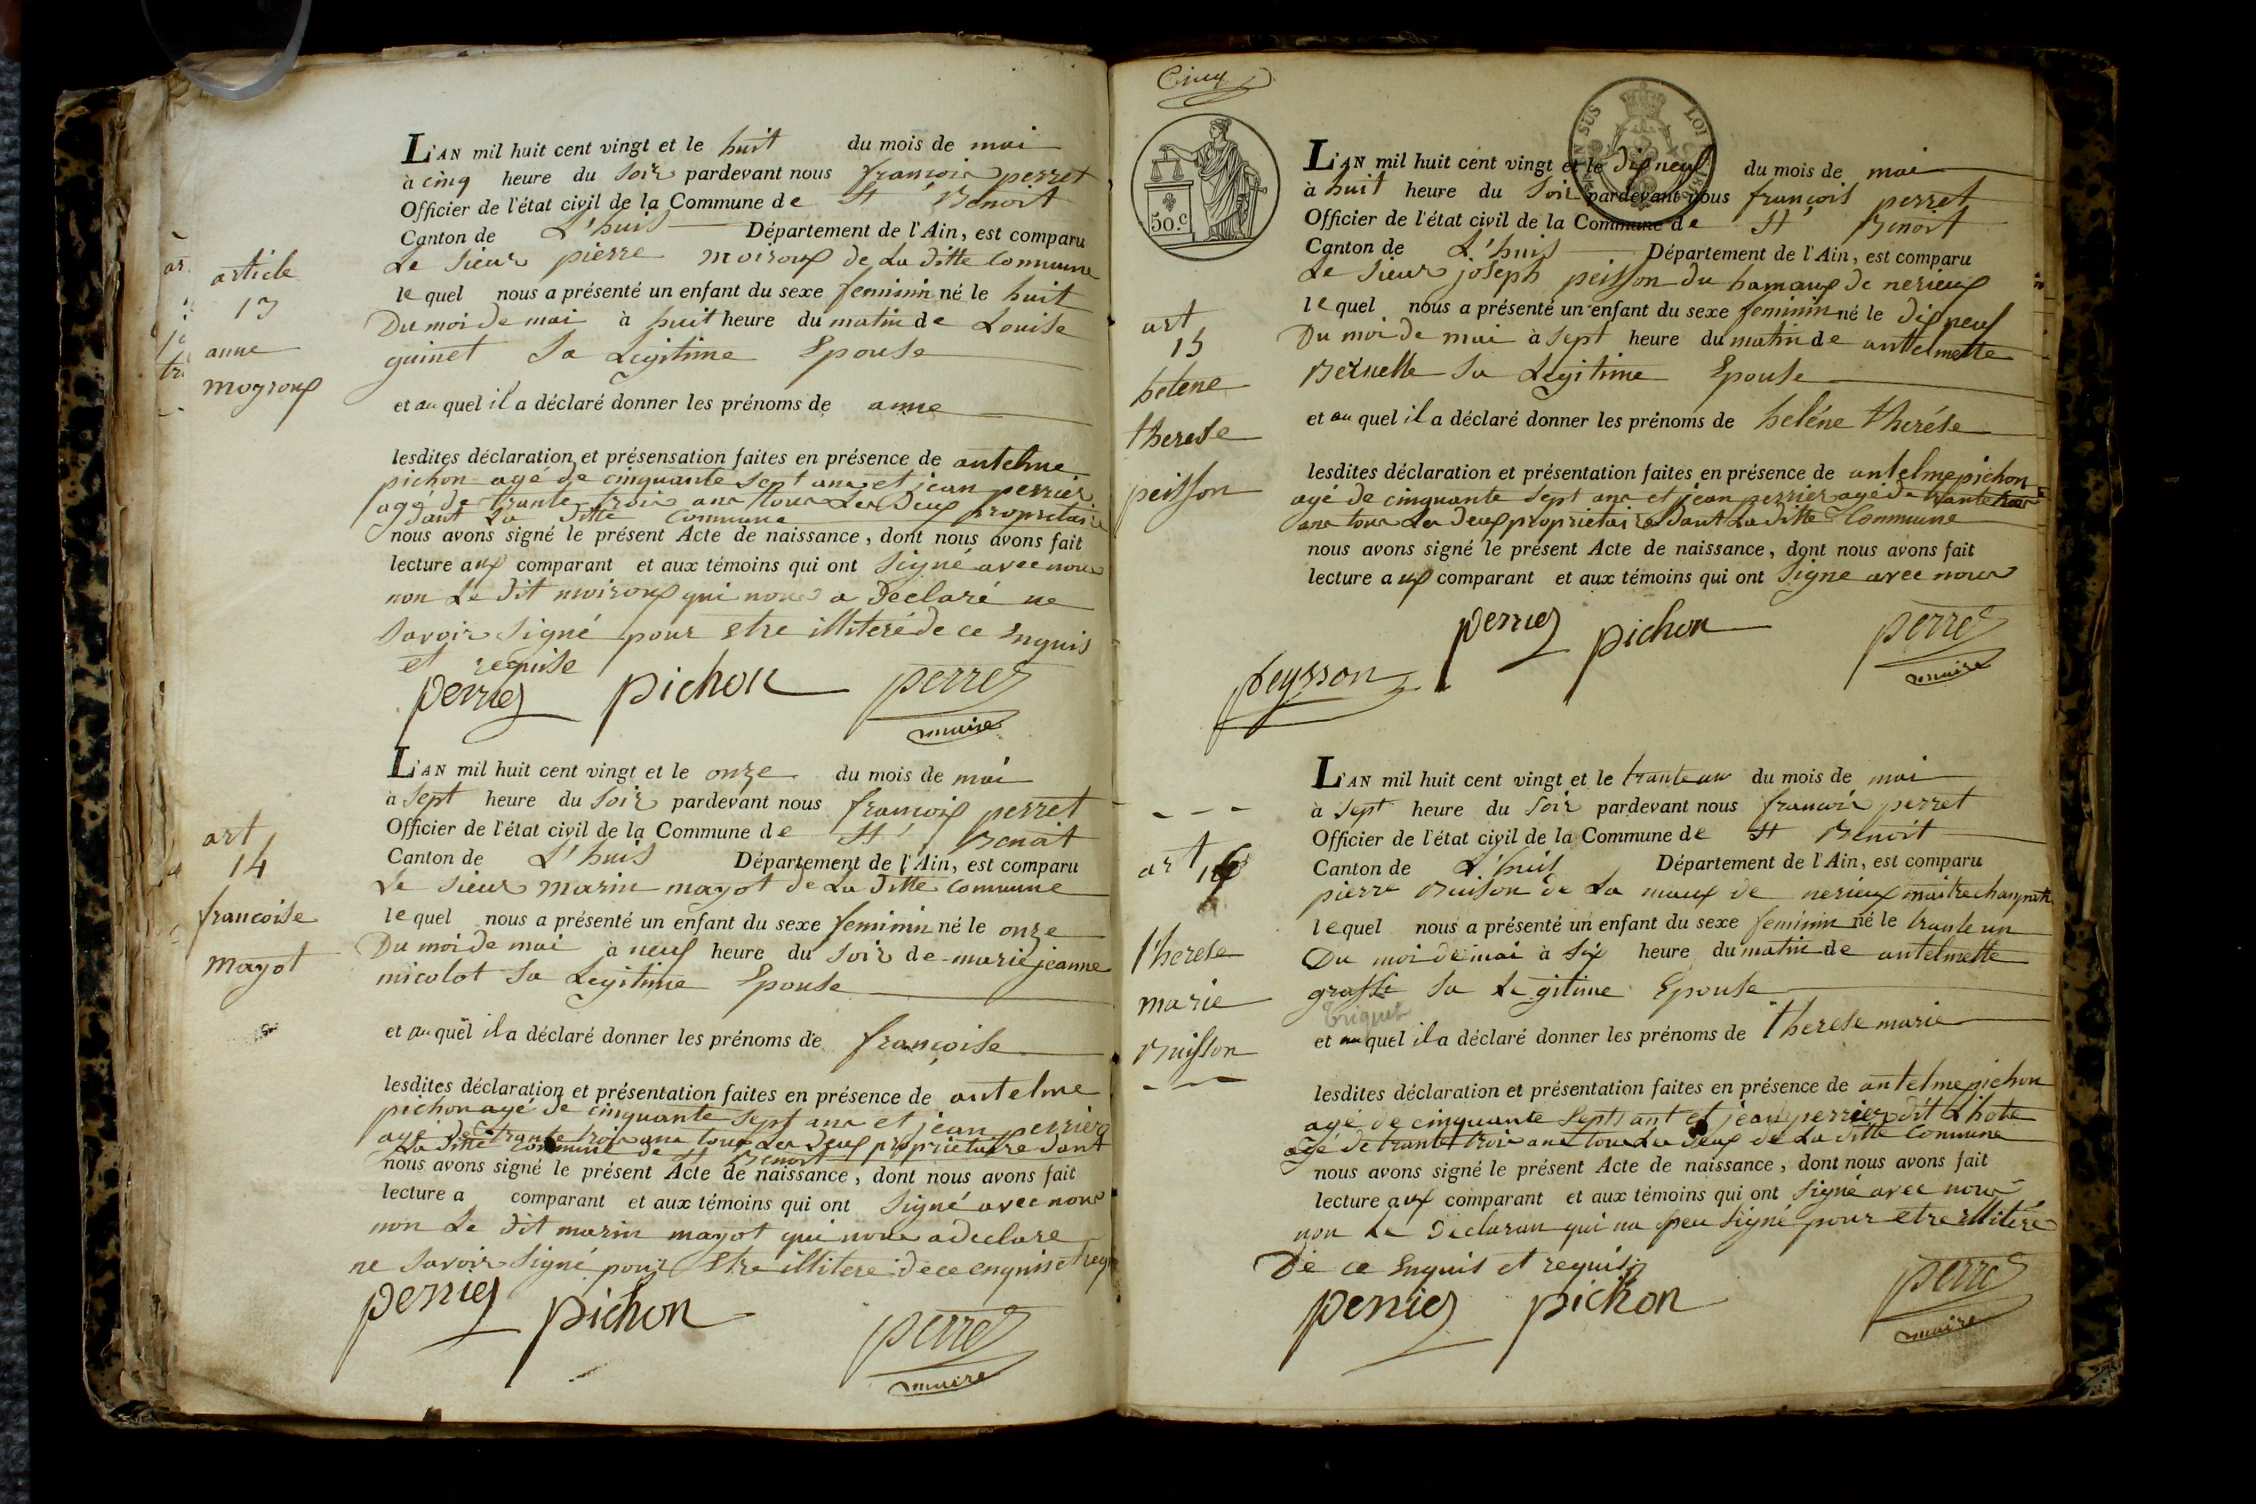 article
13
anne
moyroux
L'AN mil huit cent vingt et le huit du mois de mai
à cinq heure du soir pardevant nous françois perret
Officier de l'état civil de la Commune de St Benoit
Canton de L'huis Département de l'Ain, est comparu
Le sieur pierre moiroux de La ditte Commune
lequel nous a présenté un enfant du sexe feminin né le huit
Du moi de mai à huit heure du matin de Louise
guinet sa Legitime Epouse
et au quel il a déclaré donner les prénoms de anne
lesdites déclaration et présensation faites en présence de antelme
pichon agé de cinquante sept ans et jean perrier
agé de trante trois ans tous Les Deux propretaire
dant La ditte Commune
nous avons signé le présent Acte de naissance, dont nous avons fait
lecture aux comparant et aux témoins qui ont signé avec nous
non Le dit moiroux qui nous a Declaré ne
savoir signé pour etre illiteré de ce Enquis
et requise
perrier pichon perret
maire
art
14
francoise
mayot
L'AN mil huit cent vingt et le onze du mois de mai
à sept heure du soir pardevant nous françois perret
Officier de l'état civil de la Commune de St Benoit
Canton de L'huis Département de l'Ain, est comparu
Le sieur marin mayot de La ditte Commune
lequel nous a présenté un enfant du sexe feminin né le onze
Du moi de mai à neuf heure du soir de marie jeanne
micolot sa Legitime Epouse
et au quel il a déclaré donner les prénoms de françoise
lesdites déclaration et présentation faites en présence de antelme
pichon agé de cinquante sept ans et jean perrier
agé de trante trois ans tous Les Deux proprietaire dant
La ditte Commune de St Benoit
nous avons signé le présent Acte de naissance, dont nous avons fait
lecture a comparant et aux témoins qui ont signé avec nous
non Le dit marin mayot qui nous a declare
ne savoir signé pour Etre illitere de ce enquis et req
perrier pichon perret
maire
Cinq
50.c
art
15
helene
therese
peisson
L'AN mil huit cent vingt et le dix neuf du mois de mai
à huit heure du soir pardevant nous françois perret
Officier de l'état civil de la Commune de St Benoit
Canton de L'huis Département de l'Ain, est comparu
Le sieur joseph peisson du hamaux de nerieux
lequel nous a présenté un enfant du sexe feminin né le dix neuf
Du moi de mai à sept heure du matin de anttelmette
Bernette sa Legitime Epouse
et au quel il a déclaré donner les prénoms de heléne therése
lesdites déclaration et présentation faites en présence de antelme pichon
agé de cinquante sept ans et jean perrier agé de trante trois
ans tous Les deux proprietaire dant La ditte Commune
nous avons signé le présent Acte de naissance, dont nous avons fait
lecture aux comparant et aux témoins qui ont signe avec nous
perrier pichon perret
peysson maire
art 16
therese
marie
Buisson
L'AN mil huit cent vingt et le trante un du mois de mai
à sept heure du soir pardevant nous françois perret
Officier de l'état civil de la Commune de St Benoit
Canton de L'huis Département de l'Ain, est comparu
pierre Buison de La maux de nerieux maitre
lequel nous a présenté un enfant du sexe feminin né le trante un
Du moi de mai à six heure du matin de antelmette
grasse sa Legitime Epouse
Briquet
et au quel il a déclaré donner les prénoms de therese marie
lesdites déclaration et présentation faites en présence de antelme pichon
agé de cinquante septs ant et jean perrier dit L'hote
agé de trante trois ans tous Les deux de La ditte Commune
nous avons signé le présent Acte de naissance, dont nous avons fait
lecture aux comparant et aux témoins qui ont signé avec nous
non Le declaran qui na peu signé pour etre illiteré
De ce Enquis et requis
perrier pichon perret
maire